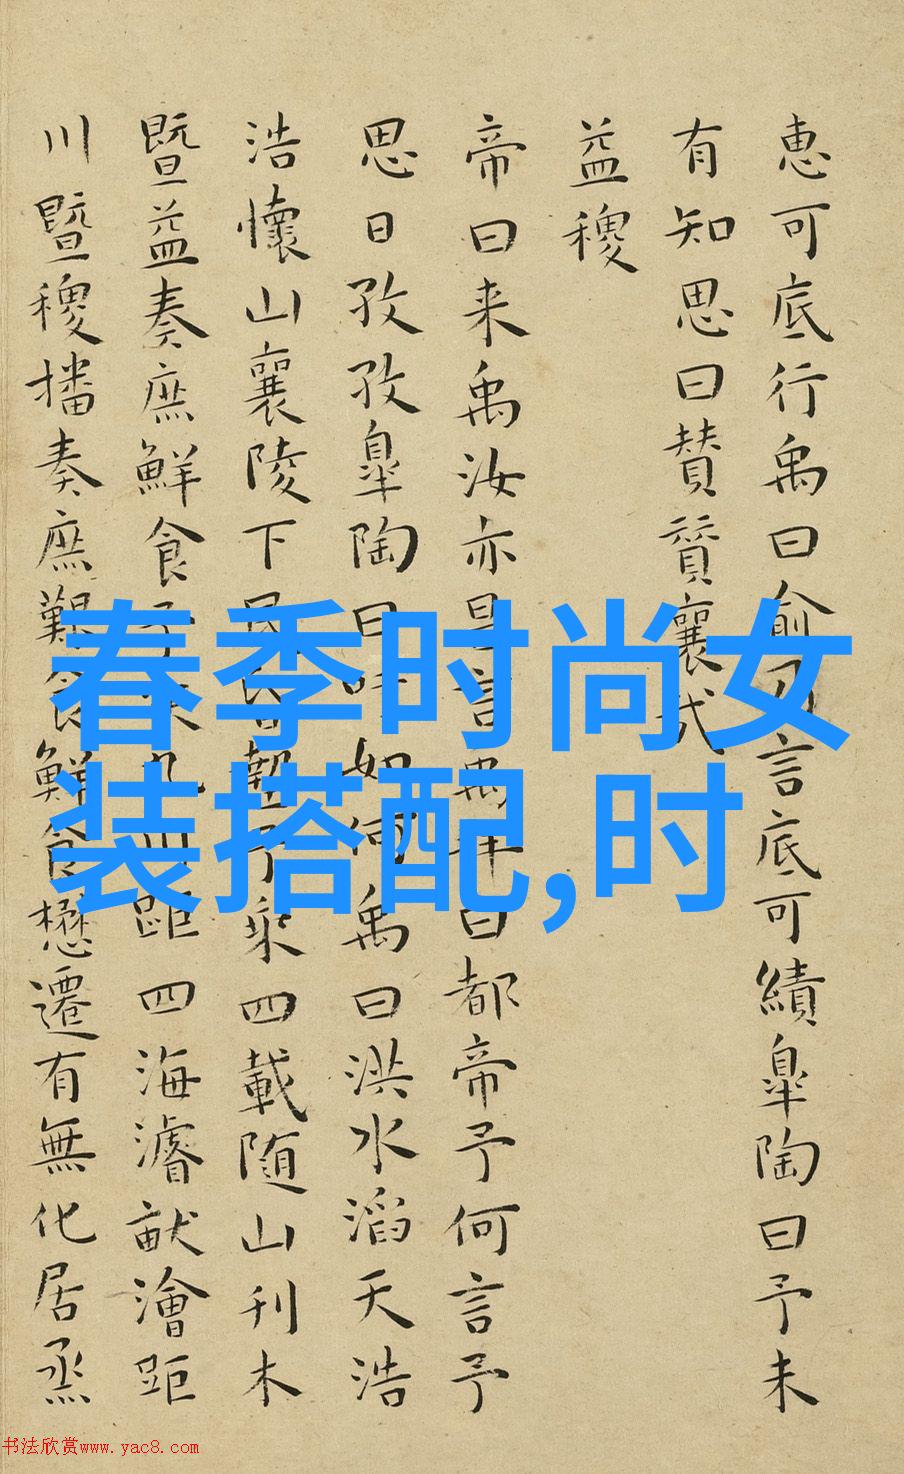 惠可底行禹曰俞乃言底可績皐陶曰予未
有知思曰贊贊襄
益稷
帝曰来禹汝亦昌言禹拜曰都帝予何言予
思日孜孜皐陶曰吁如何禹曰洪水滔天浩
浩懷山襄陵下民昏墊予乘四載随山刊木
暨益奏庶鮮食予决九川距四海濬畎澮距
川暨稷播奏庶艱食鮮食懋遷有無化居烝
春季时尚女
装搭配,时
书法欣赏www.yac8.com